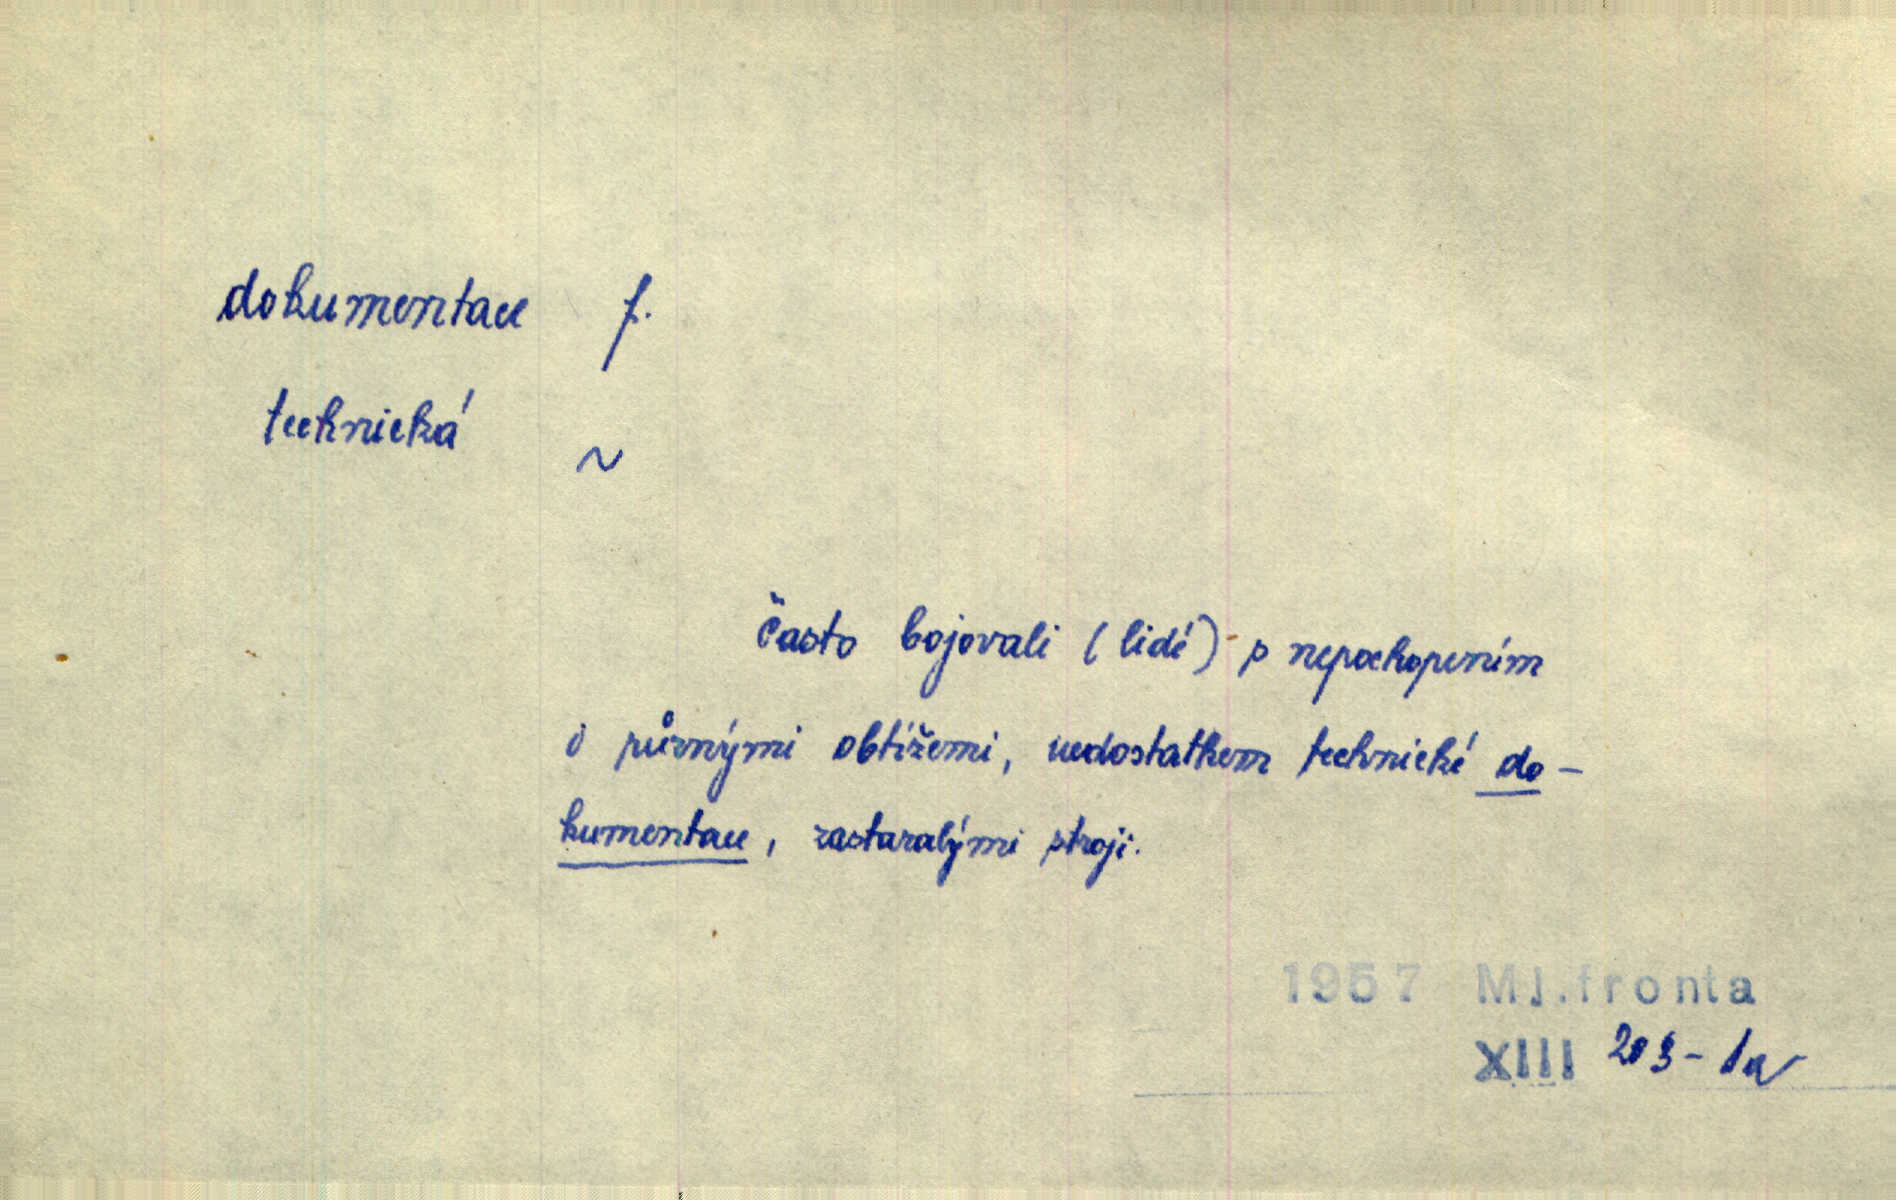 dokumentace f.
technická ~
často bojovali (lidé) s nepochopením
i různými obtížemi, nedostatkem technické do-
kumentace, zastaralými stroji.
1957 Ml.fronta
XIII 203-1a